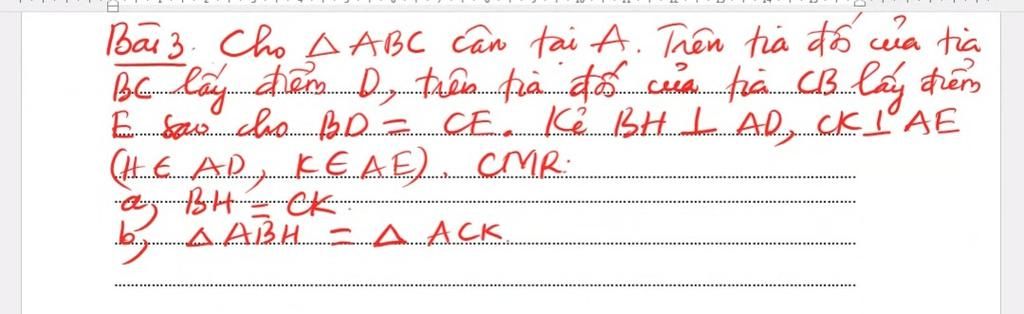 Bài 3. Cho △ ABC cân tại A. Trên tia đối của tia
BC lấy điểm D, trên tia đối của tia CB lấy điểm
E sao cho BD = CE. Kẻ BH ⊥ AD, CK ⊥ AE
(H ∈ AD, K ∈ AE). CMR:
a, BH = CK.
b, △ ABH = △ ACK.